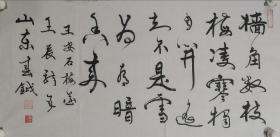 墙角数枝
梅凌寒独
自开遥
知不是雪
为有暗
香来
王安石梅花
壬辰
山东